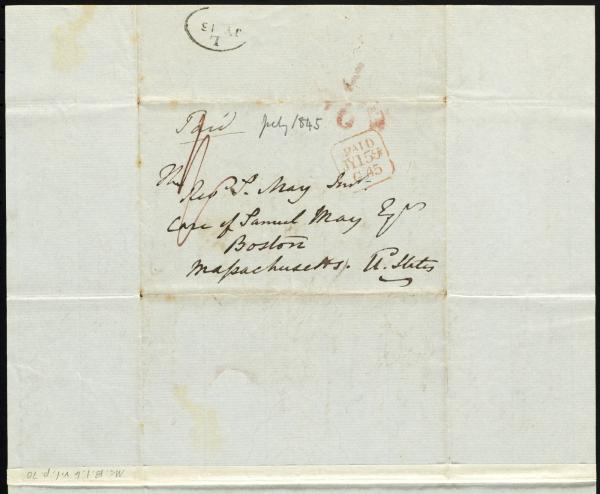 L
JY 13
Paid July 1845
PAID
JY 15
1845
The
Revd S. May Junr
Care of Samuel May Esqr
Boston
Massachusetts. U. States
Ms. B.1.6 v.1, p. 70